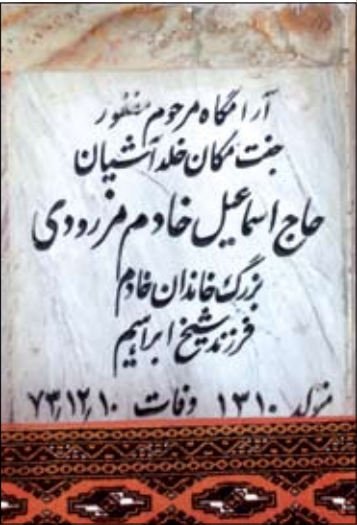 آرامگاه مرحوم مغفور
جنت مکان خلد آشیان
حاج اسماعیل خادم مزرودی
بزرگ خاندان خادم
فرزند شیخ ابراهیم
متولد ۱۳۱۰ وفات ۷۳٫۱۲٫۱۰